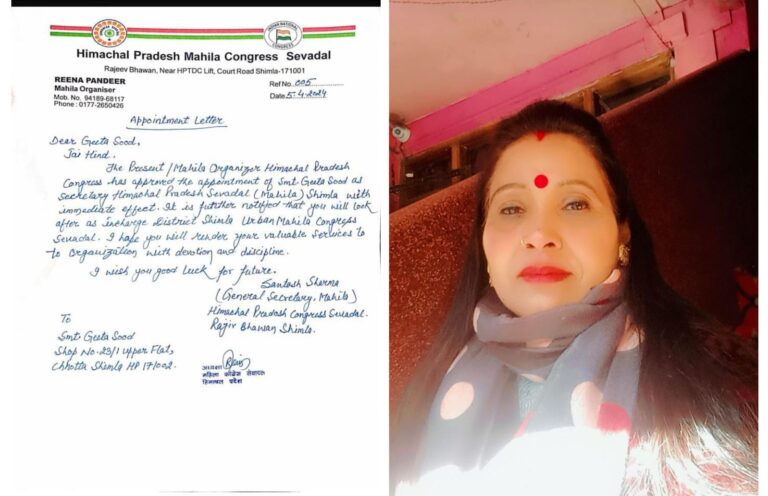 INDIAN NATIONAL
CONGRESS
Himachal Pradesh Mahila Congress Sevadal
Rajeev Bhawan, Near HPTDC Lift, Court Road Shimla-171001
REENA PANDEER
Mahila Organiser
Mob. No. 94189-68117
Phone : 0177-2650426
Ref No. 005
Date 5.4.2024
Appointment Letter
Dear Geeta Sood,
Jai Hind.
The Present/Mahila Organizer Himachal Pradesh
Congress has approved the appointment of Smt. Geeta Sood as
Secretary Himachal Pradesh Sevadal (Mahila) Shimla with
immediate effect. It is further notified that you will look
after as Incharge District Shimla Urban Mahila Congress
Sevadal. I hope you will render your valuable services to
to Organization with devotion and discipline.
I wish you good luck for future.
Santosh Sharma
(General Secretary, Mahila)
Himachal Pradesh Congress Sevadal.
Rajiv Bhawan Shimla.
To
Smt Geeta Sood
Shop No. 23/1 Upper Flat,
Chhotta Shimla HP 171002.
अध्यक्षा
महिला काँग्रेस सेवादल
हिमाचल प्रदेश